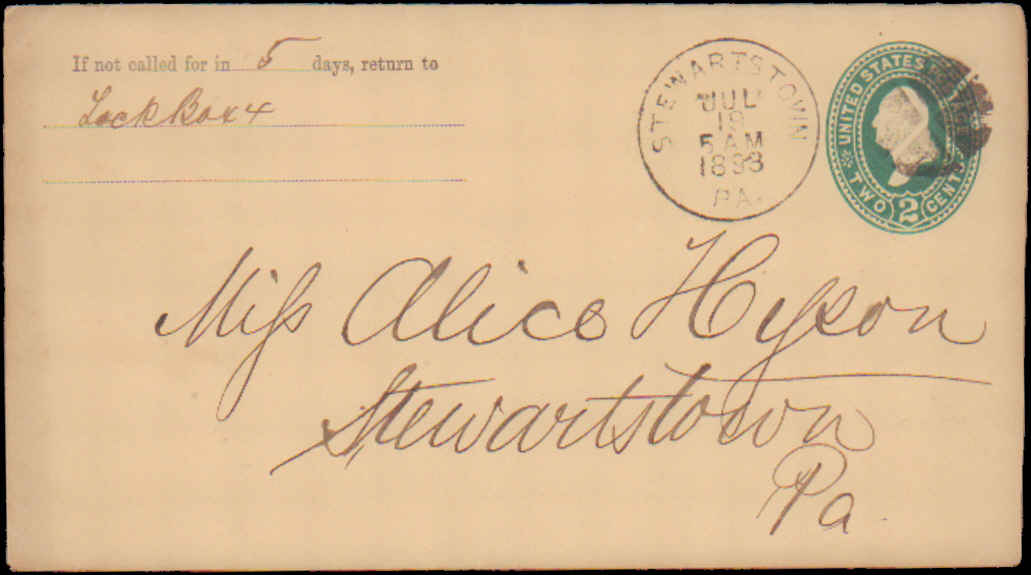 If not called for in 5 days, return to
Lock Box 4
STEWARTSTOWN
JUL
19
5 AM
1893
PA.
UNITED STATES
TWO 2 CENTS
Miss Alice Hyson
Stewartstown
Pa